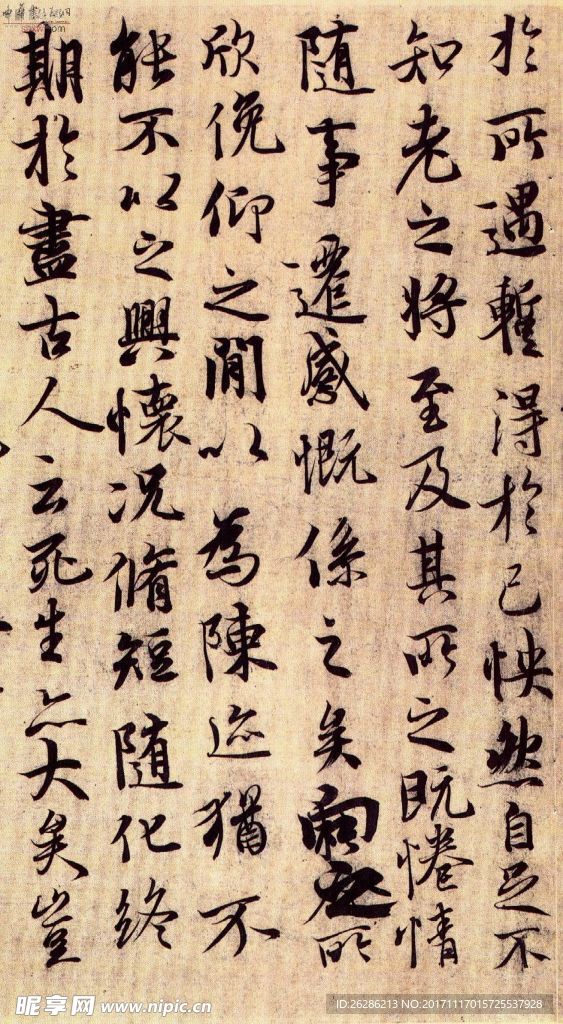 於所遇暫得於己怏然自足不
知老之將至及其所之既惓情
隨事遷感慨係之矣向之所
欣俛仰之閒以為陳迹猶不
能不以之興懷況脩短隨化終
期於盡古人云死生亦大矣豈
昵享网 www.nipic.cn
ID:26286213 NO:20171117015725537928